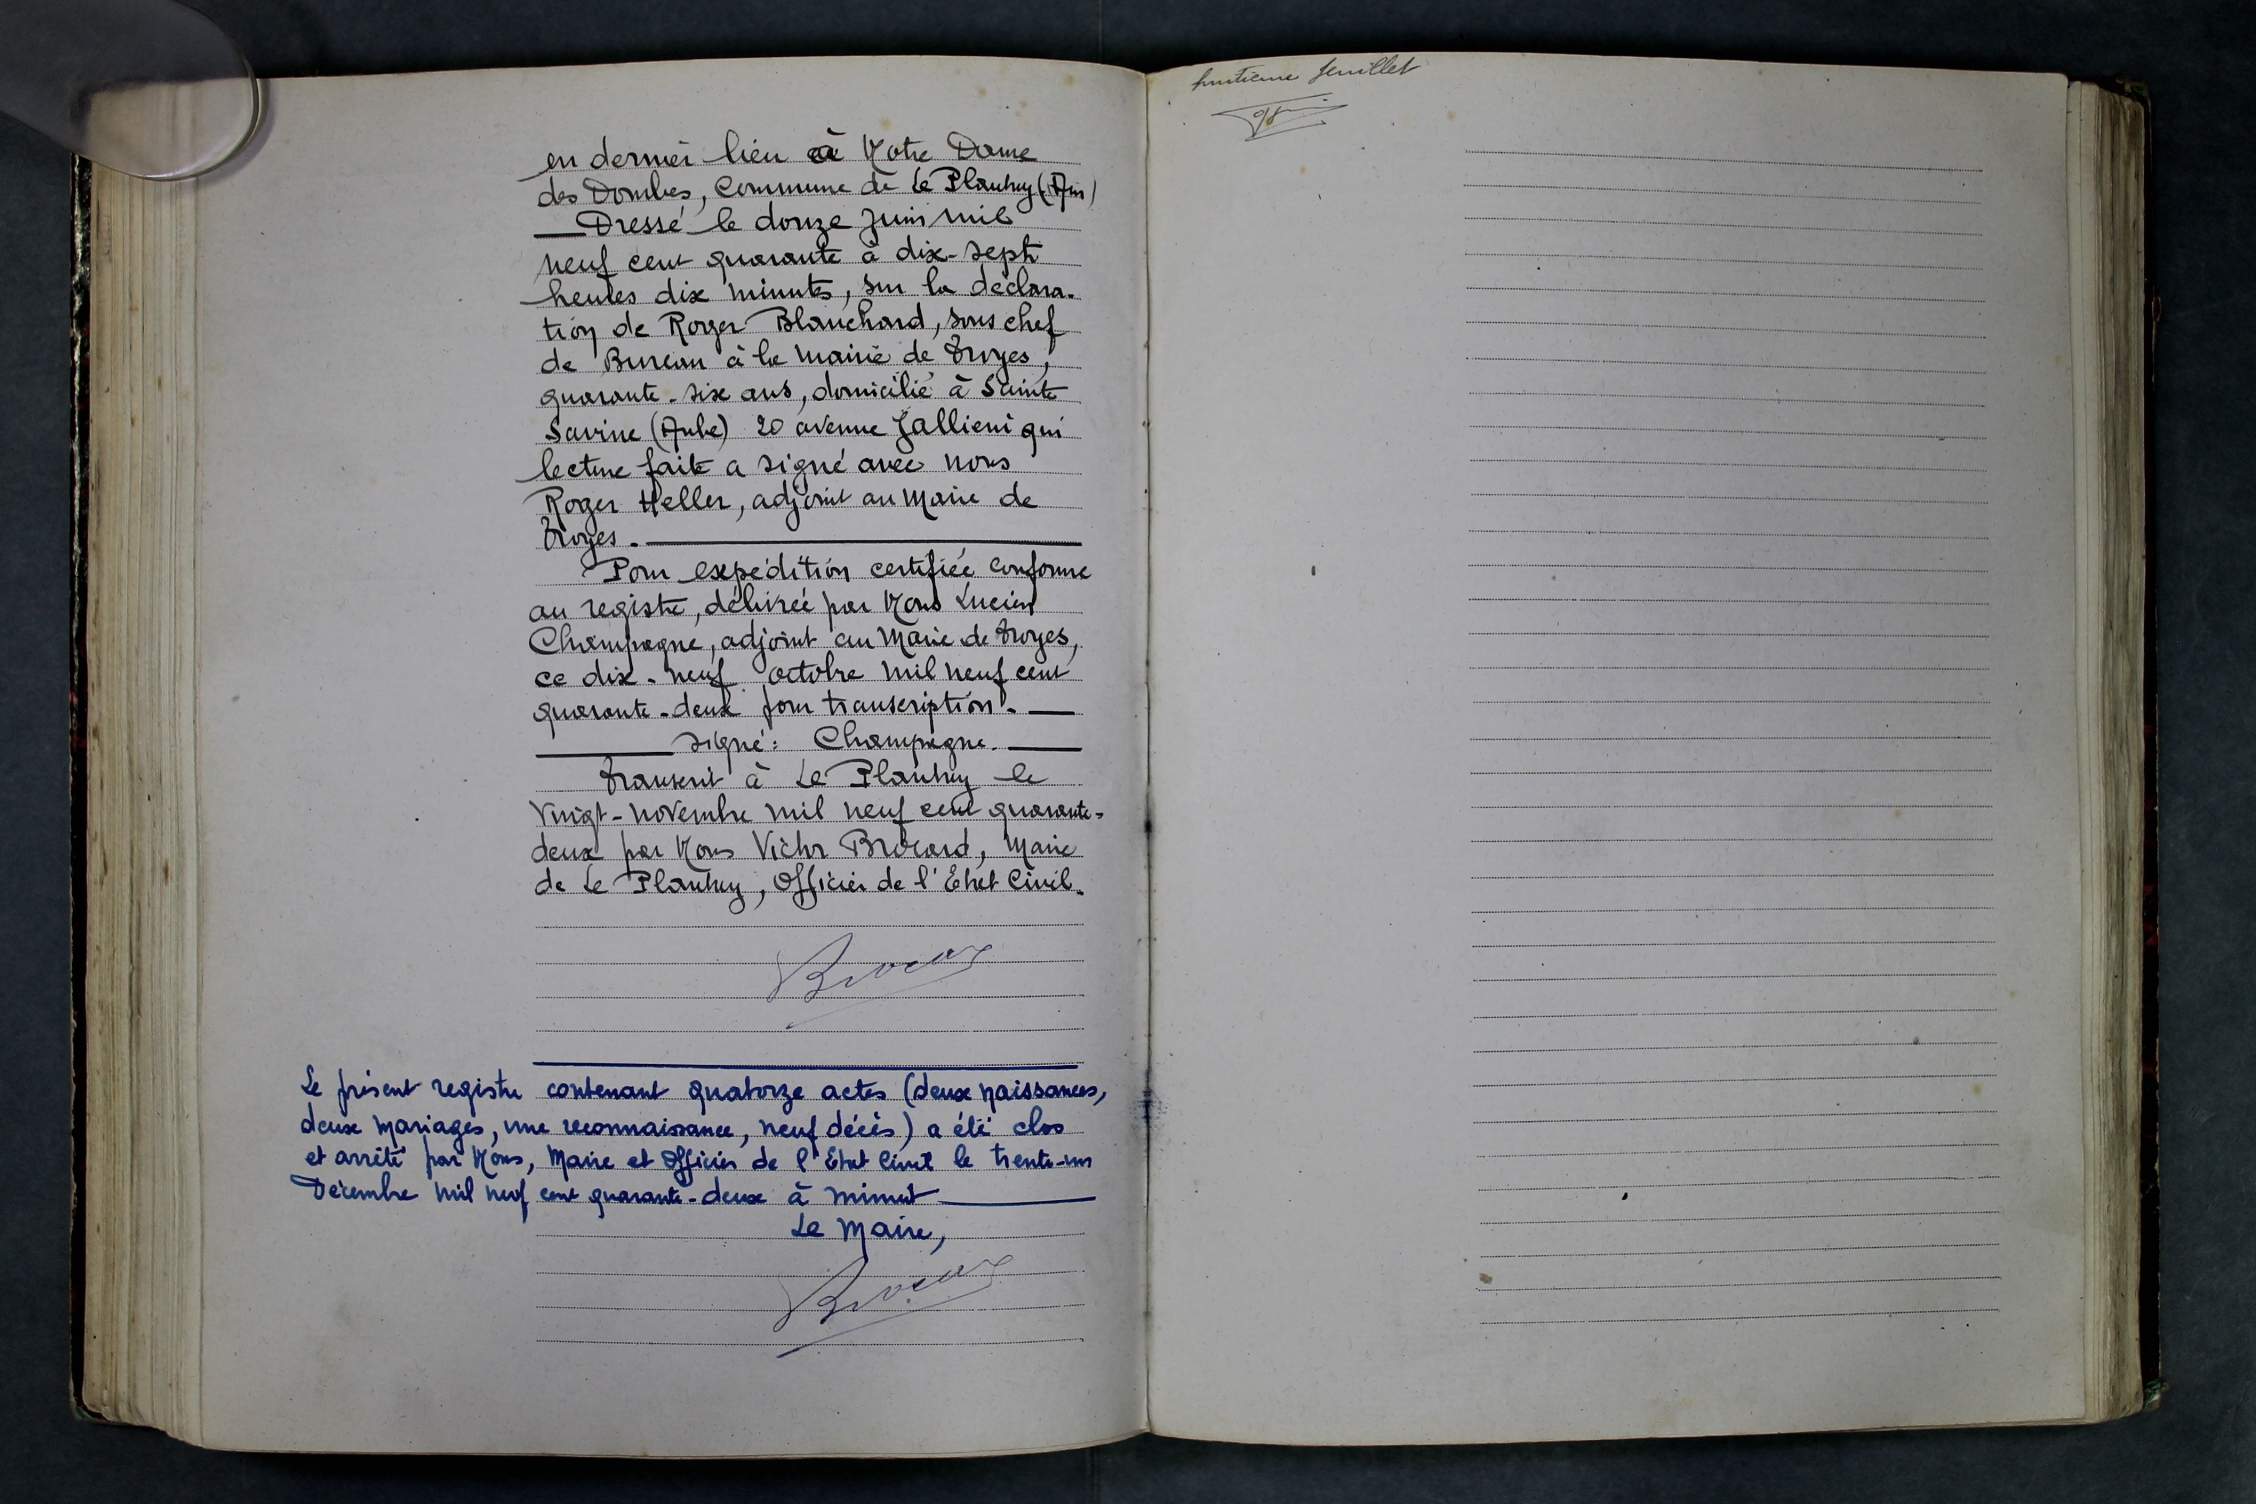 en dernier lieu à Notre Dame
des Dombes, Commune de Le Plantay (Ain)
Dressé le douze juin mil
neuf cent quarante à dix-sept
heures dix minutes, sur la déclara-
tion de Roger Blanchard, sous chef
de Bureau à la Mairie de Troyes,
quarante-six ans, domicilié à Sainte
Savine (Aube) 20 avenue Gallieni qui
lecture faite a signé avec nous
Roger Heller, adjoint au Maire de
Troyes.
Pour expédition certifiée conforme
au registre, délivrée par Nous Lucien
Champagne, adjoint au Maire de Troyes,
ce dix-neuf octobre mil neuf cent
quarante-deux pour transcription.
signé: Champagne.
Transcrit à Le Plantay le
Vingt-novembre mil neuf cent quarante-
deux par Nous Victor Brocard, Maire
de Le Plantay, Officier de l'Etat Civil.
Brocard
Le présent registre contenant quatorze actes (deux naissances,
deux mariages, une reconnaissance, neuf décès) a été clos
et arrêté par Nous, Maire et Officier de l'Etat Civil le trente-un
Décembre mil neuf cent quarante-deux à minuit
Le Maire,
Brocard
huitième feuillet